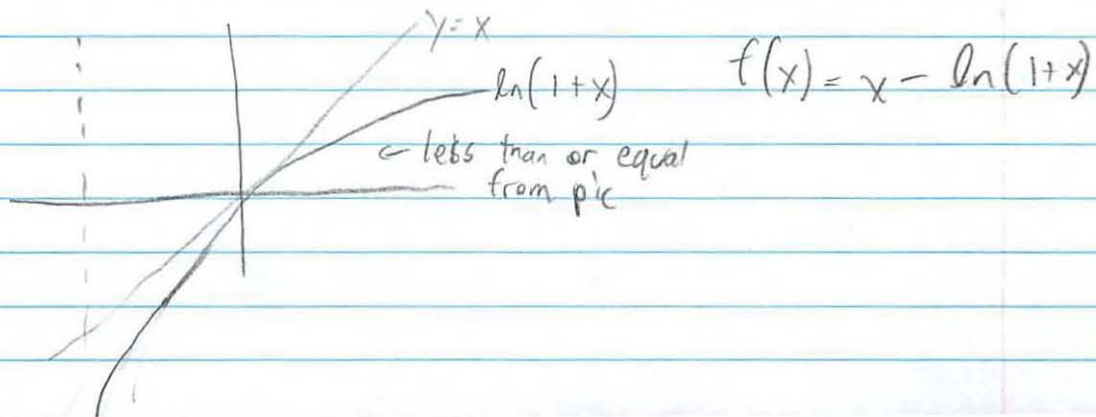 y=x
ln(1+x)
f(x) = x - ln(1+x)
← less than or equal
from pic